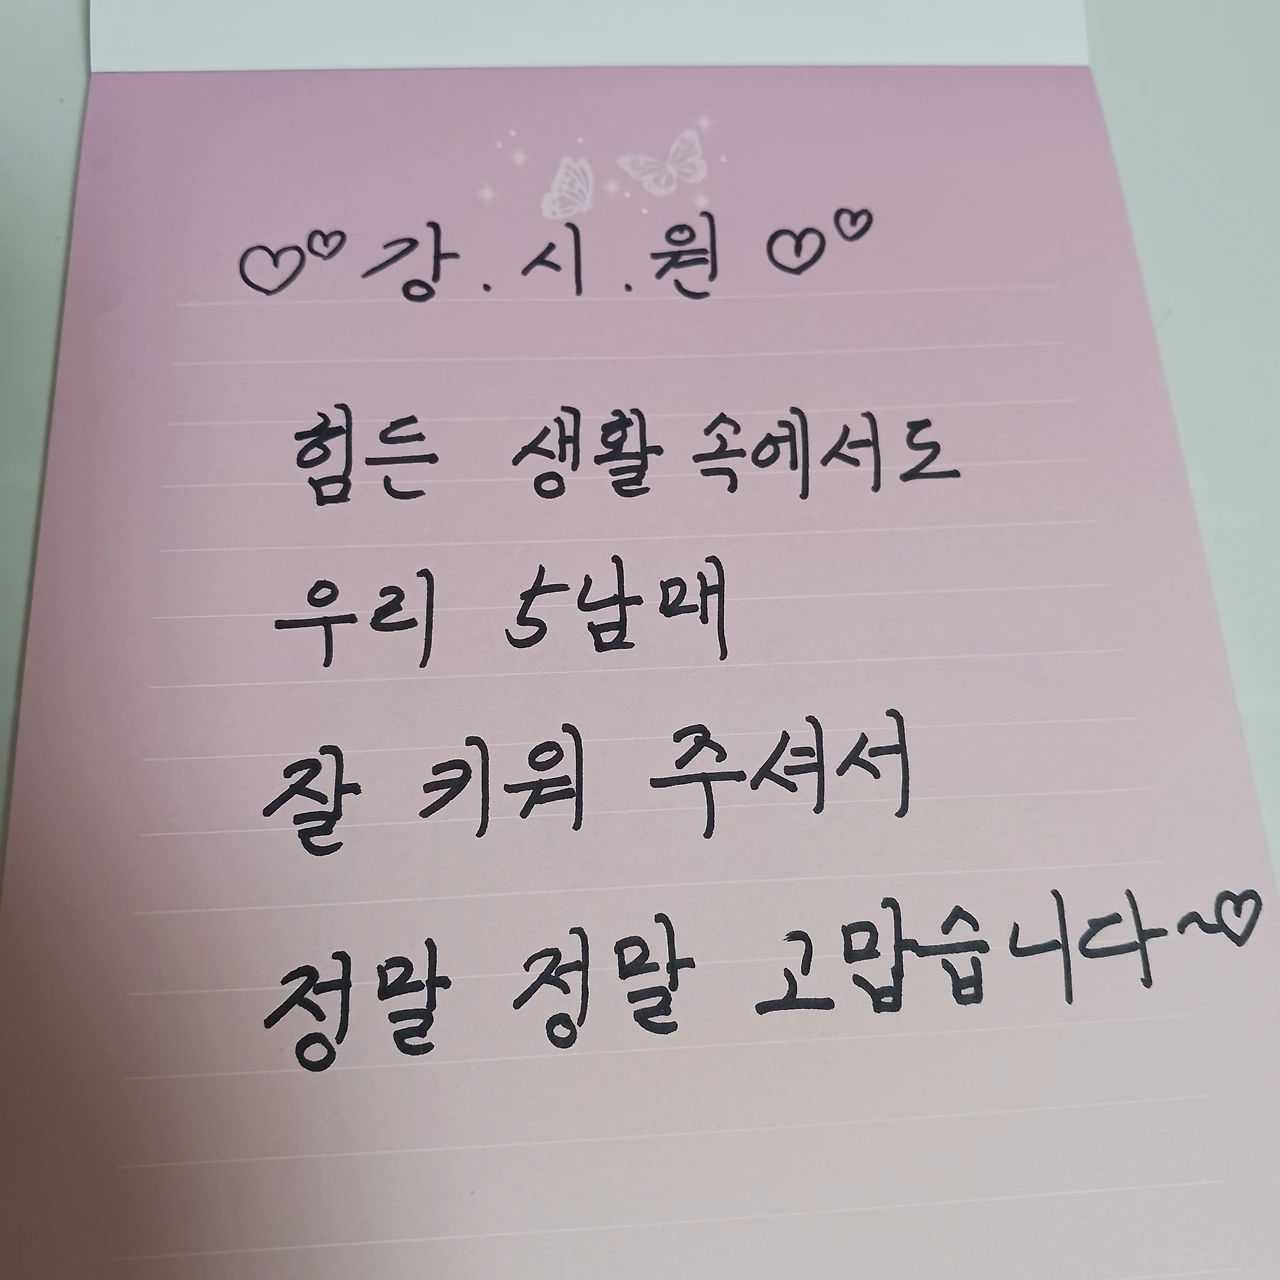 ♡♡강.시.원♡♡
힘든 생활 속에서도
우리 5남매
잘 키워 주셔서
정말 정말 고맙습니다~♡